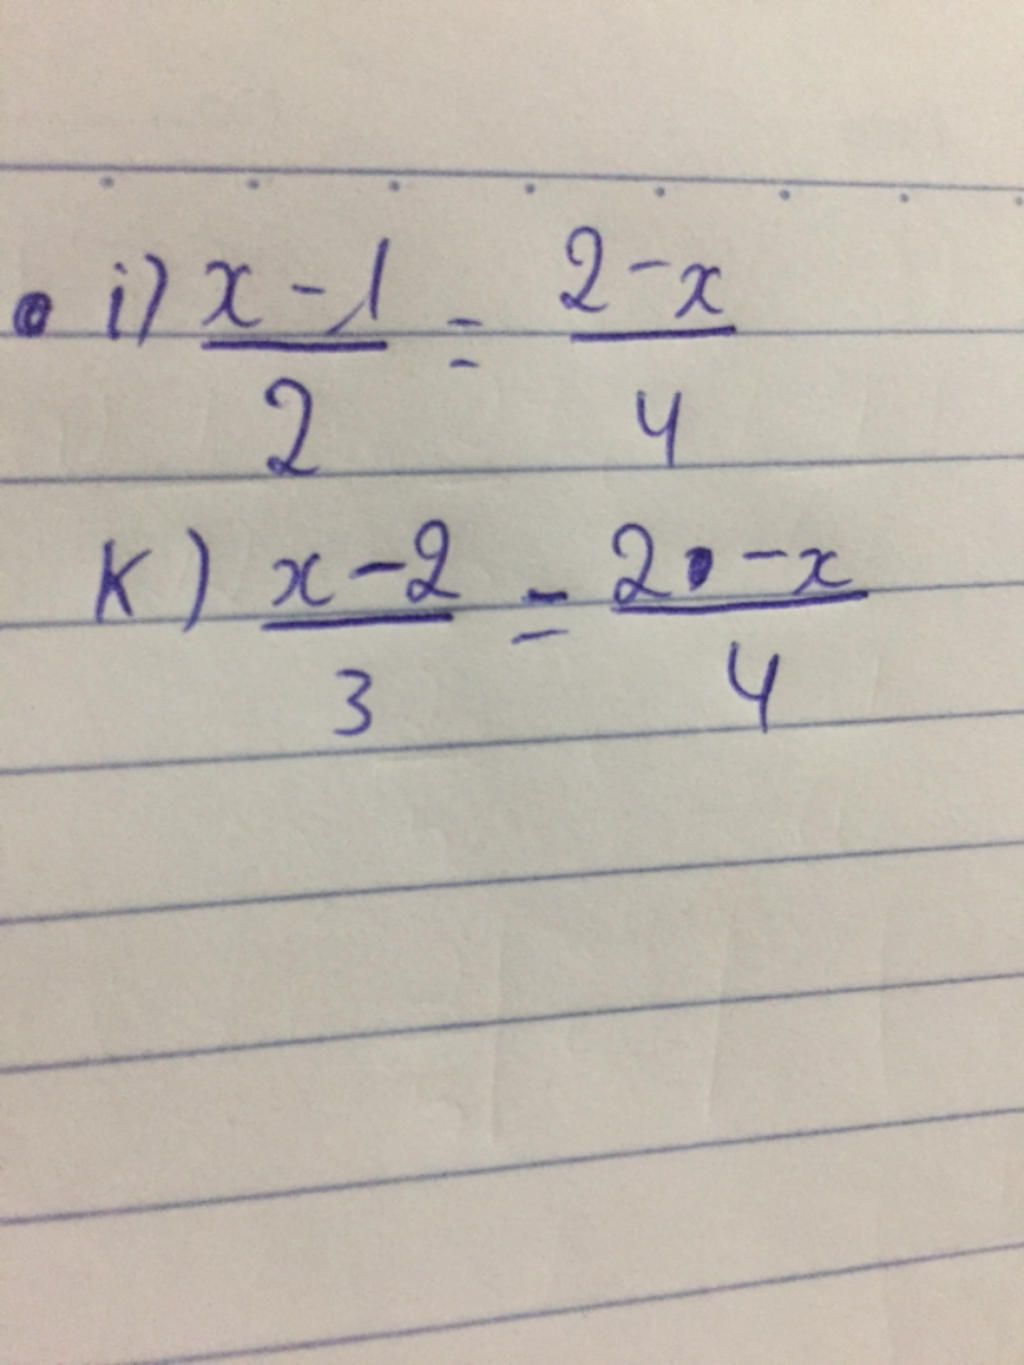 i) x - 1 / 2 = 2 - x / 4
k) x - 2 / 3 = 2 - x / 4